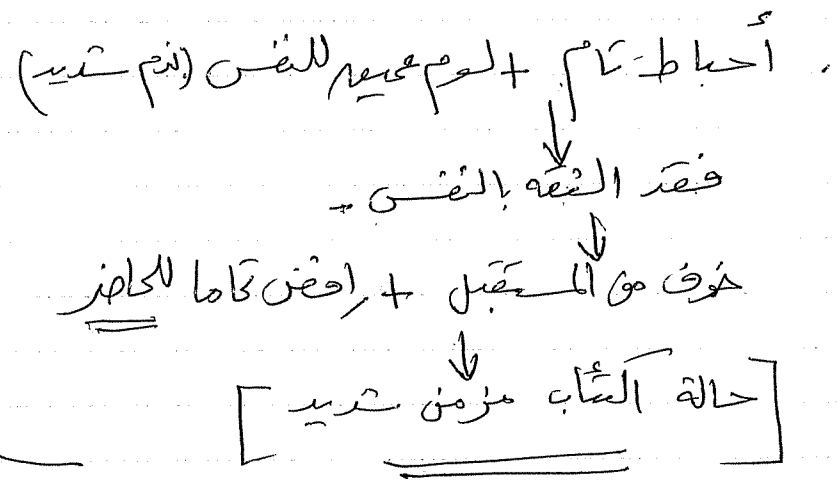 . أحباط تام + لوم عميق للنفس (ندم شديد)
↓
فقد الثقه بالنفس -
↓
خوف من المستقبل + رافض تماما للحاضر
↓
[حالة اكتئاب مزمن شديد]